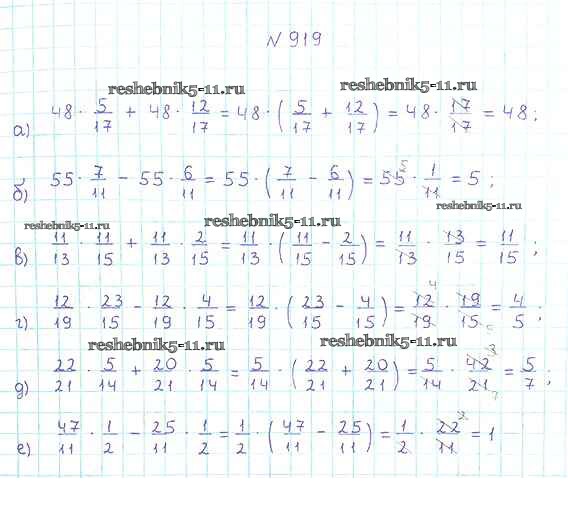 N 919
reshebnik5-11.ru reshebnik5-11.ru
а) 48 · 5/17 + 48 · 12/17 = 48 · (5/17 + 12/17) = 48 · 17/17 = 48;
б) 55 · 7/11 − 55 · 6/11 = 55 · (7/11 − 6/11) = 55 5 · 1/11 = 5;
reshebnik5-11.ru reshebnik5-11.ru reshebnik5-11.ru
в) 11/13 · 11/15 + 11/13 · 2/15 = 11/13 · (11/15 − 2/15) = 11/13 · 13/15 = 11/15;
г) 12/19 · 23/15 − 12/19 · 4/15 = 12/19 · (23/15 − 4/15) = 12 4/19 · 19/15 5 = 4/5;
reshebnik5-11.ru reshebnik5-11.ru
д) 22/21 · 5/14 + 20/21 · 5/14 = 5/14 · (22/21 + 20/21) = 5/14 · 42 3/21 7 = 5/7;
е) 47/11 · 1/2 − 25/11 · 1/2 = 1/2 · (47/11 − 25/11) = 1/2 · 22 2/11 = 1